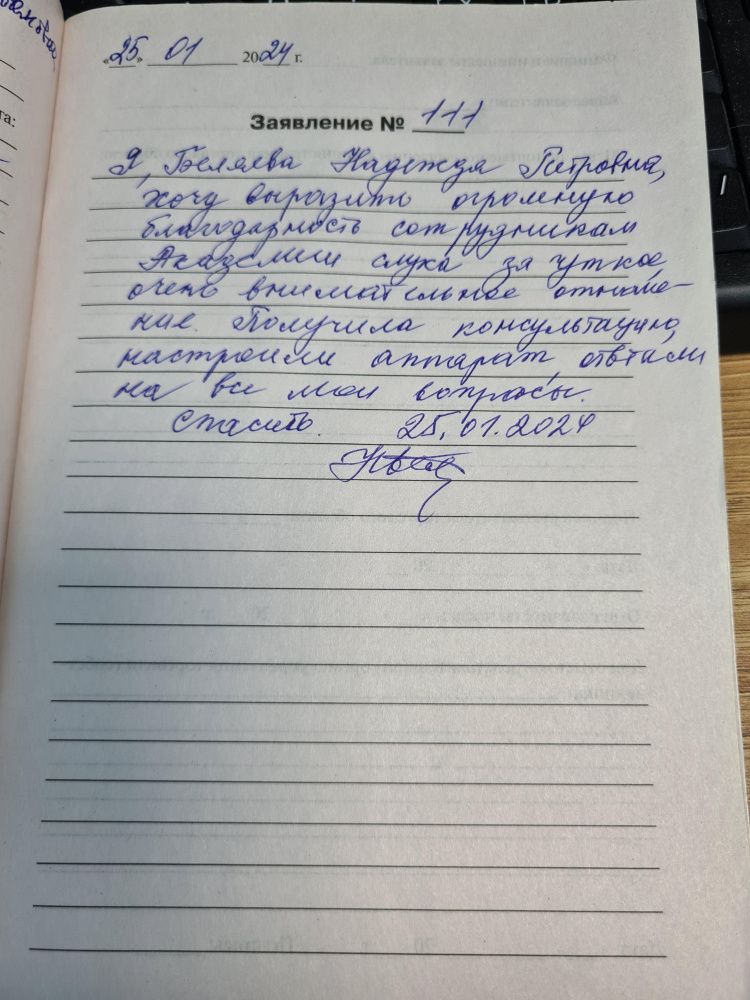 «25» 01 2024 г.
Заявление № 111
Я, Беляева Надежда Петровна,
хочу выразить огромную
благодарность сотрудникам
Академии слуха за чуткое,
очень внимательное отноше-
ние. Получила консультацию,
настроили аппарат, ответили
на все мои вопросы.
Спасибо. 25.01.2024